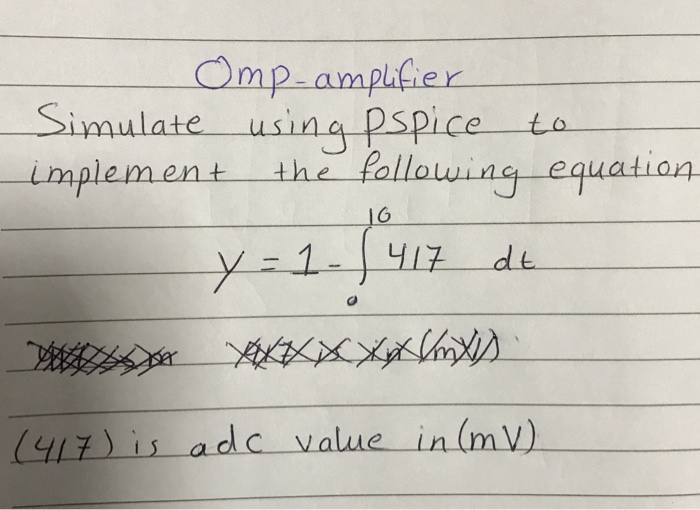 Omp-amplifier
Simulate using Pspice to
implement the following equation
10
y = 1 - ∫ 417 dt
0
(417) is adc value in (mV)